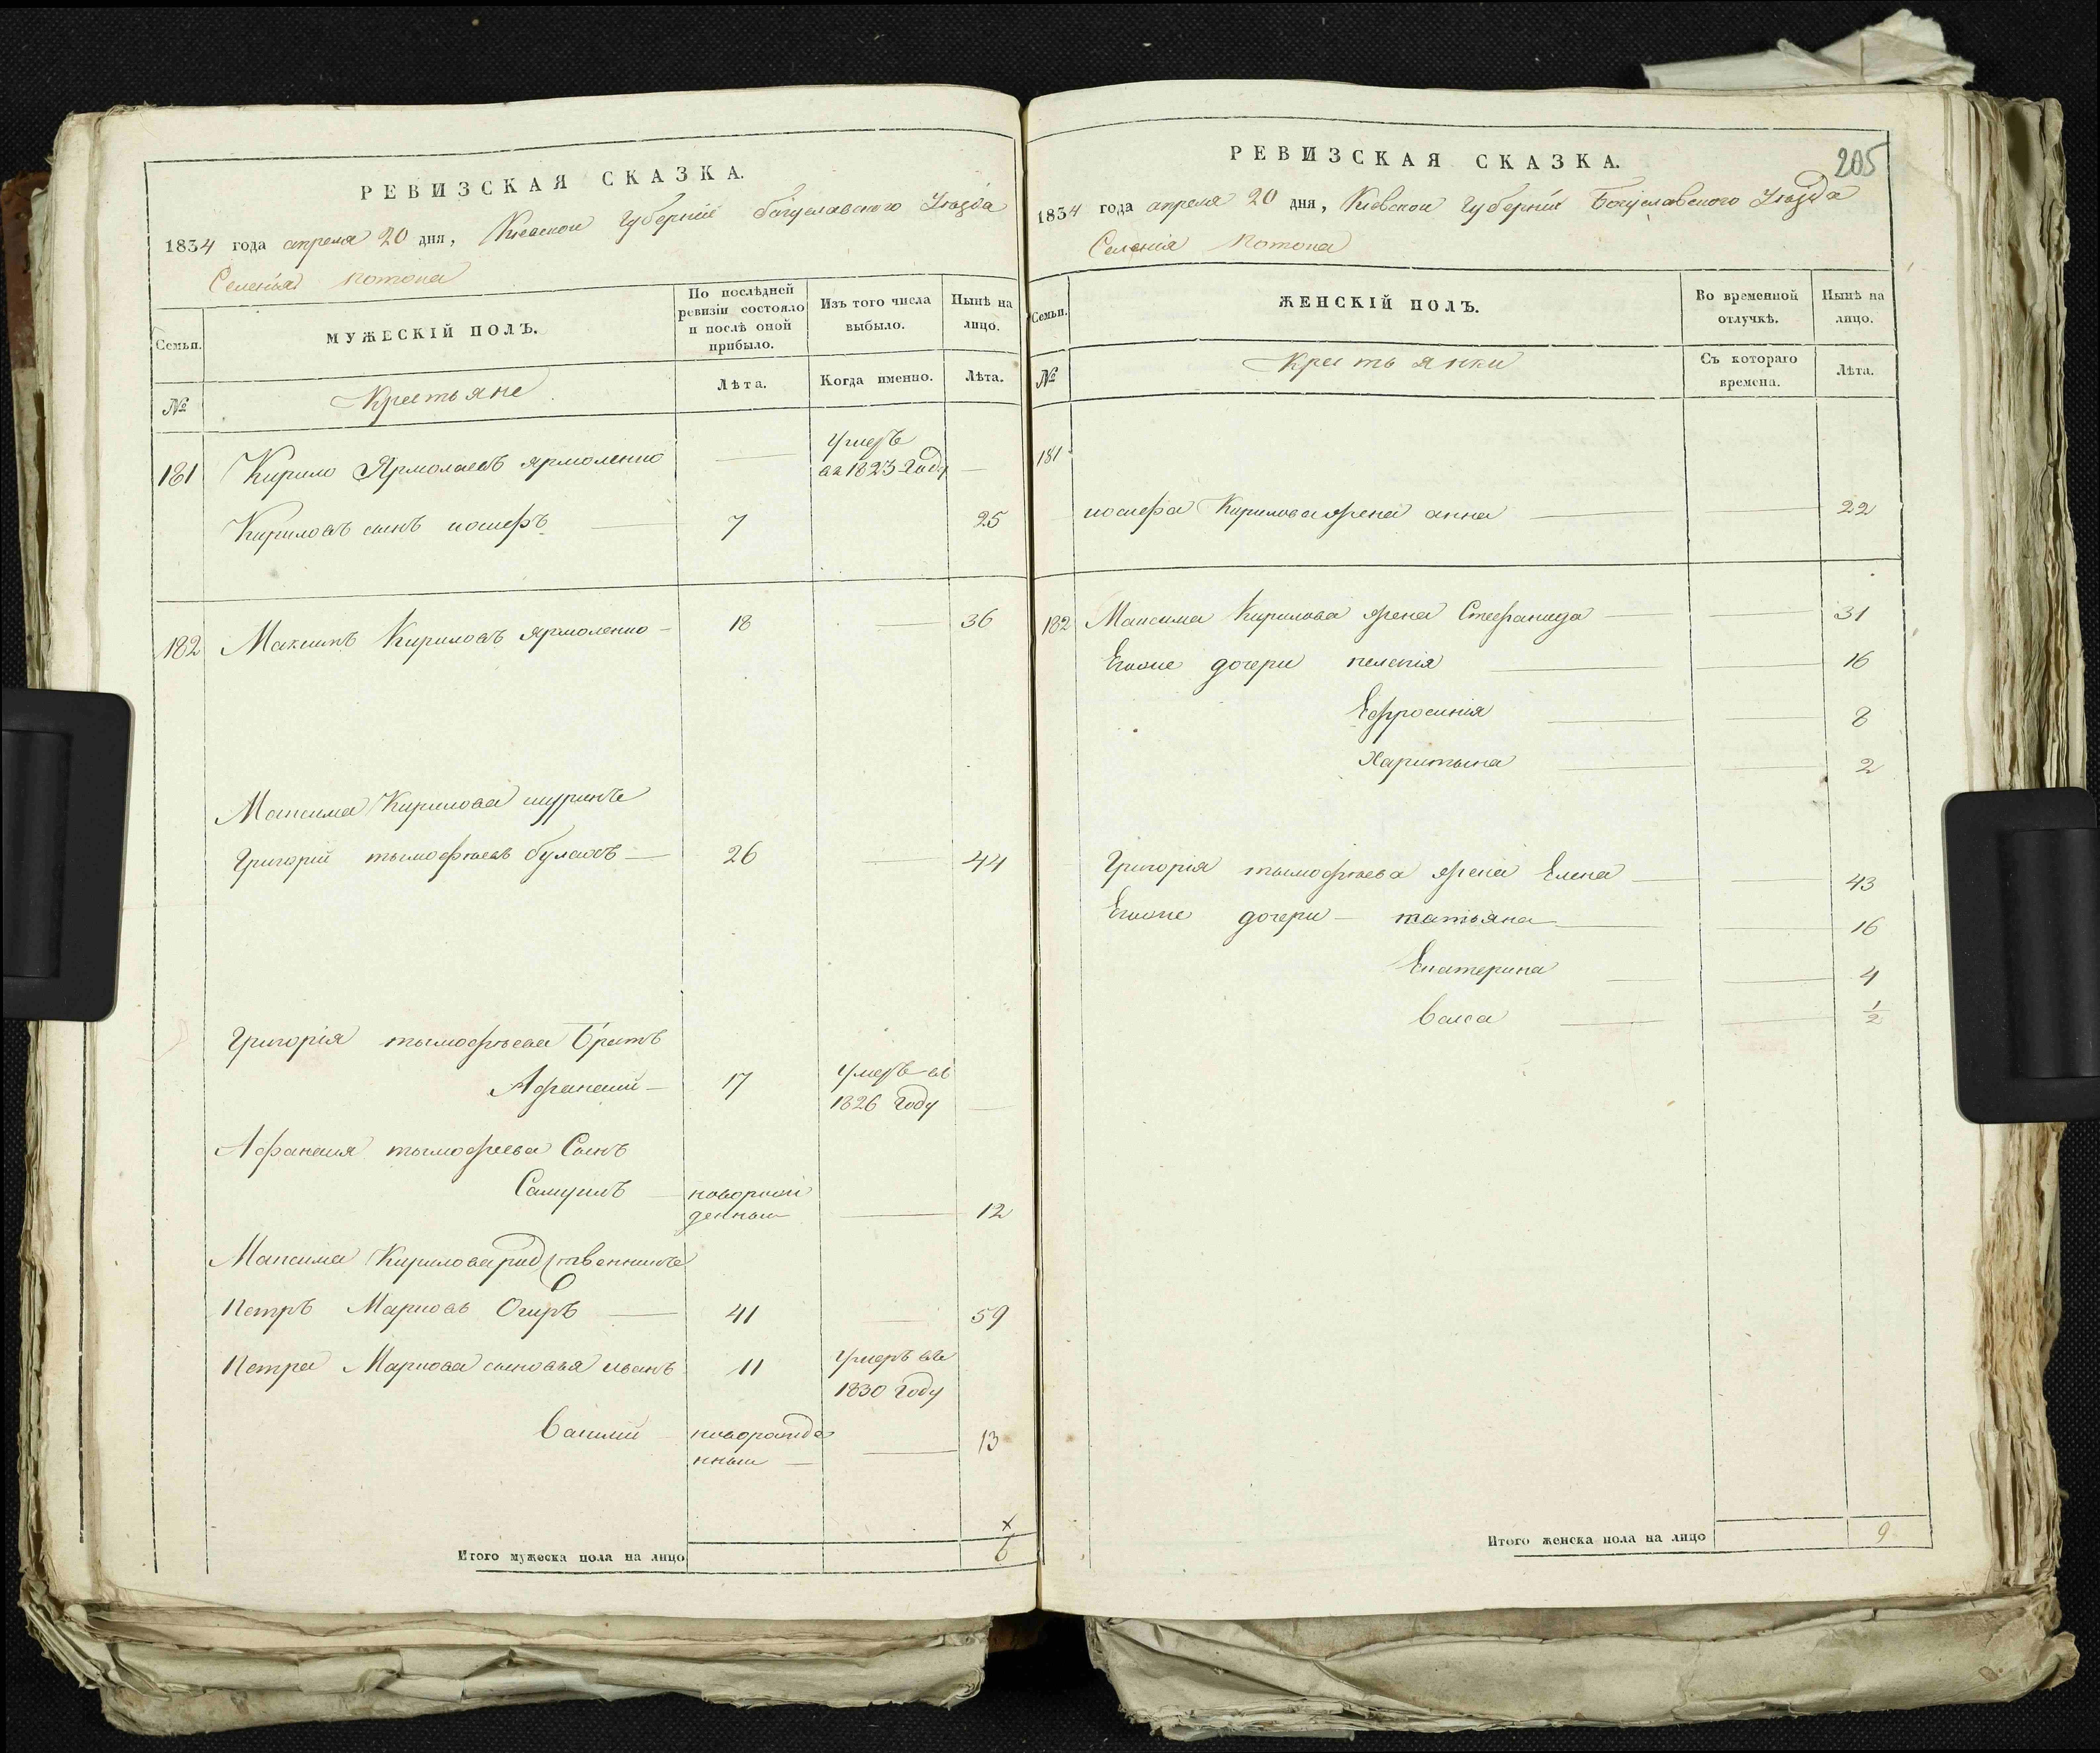 РЕВИЗСКАЯ СКАЗКА.
1834 года апреля 20 дня, Киевской Губерніи богуславского Уезда
Селенія потока
Семьи.
МУЖЕСКІЙ ПОЛЪ.
По послѣдней ревизіи состояло и послѣ оной прибыло.
Изъ того числа выбыло.
Нынѣ на лицо.
№
Крестьяне
Лѣта.
Когда именно.
Лѣта.
181 Кирило Ярмолаевъ ярмоленко — умеръ
въ 1823 году —
Кириловъ сынъ иосифъ — 7 25
182 Максимъ Кириловъ ярмоленко — 18 — 36
Максима Кирилова шуринъ
Григорій тымофѣевъ — 26 — 44
Григорія тымофѣева Братъ
Афанасий — 17 умеръ въ
1826 году —
Афанасия тымофеева Сынъ
Самуилъ — новорож
денный — 12
Максима Кирилова родственникъ
Петръ Марковъ Огиръ — 41 — 59
Петра Маркова сыновья иванъ 11 умеръ въ
1830 году
Василий — новорожде
нный — — 13
х
Итого мужеска пола на лицо 6
РЕВИЗСКАЯ СКАЗКА.
205
1834 года апреля 20 дня, Киевской Губерніи Богуславского Уезда
Селенія Потока
Семьи.
ЖЕНСКІЙ ПОЛЪ.
Во временной отлучкѣ.
Нынѣ на лицо.
№
Крестьянки
Съ котораго времена.
Лѣта.
181
иосифа Кирилова жена анна — 22
182 Максима Кирилова жена Стефанида — — 31
Егоже дочери пелегія — — 16
Ефросинія — — 8
Харитына — — 2
Григорія тымофѣева жена Елена — — 43
Егоже дочери — татьяна — — 16
Екатерина — — 4
Васса — — 1/2
Итого женска пола на лицо 9